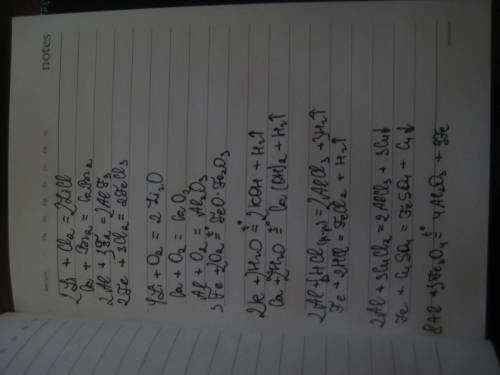 notes
2Li + Cl₂ = 2LiCl
Ca + Br₂ = CaBr₂
2Al + 3F₂ = 2AlF₃
2Fe + 3Cl₂ = 2FeCl₃
4Li + O₂ = 2Li₂O
Ca + O₂ = CaO
Al + O₂ = Al₂O₃
3Fe + 2O₂ = FeO·Fe₂O₃
2K + 2H₂O = 2KOH + H₂↑
Ca + 2H₂O = Ca(OH)₂ + H₂↑
2Al + 6HCl (р-р) = 2AlCl₃ + 3H₂↑
Fe + 2HCl = FeCl₂ + H₂↑
2Al + 3CuCl₂ = 2AlCl₃ + 3Cu↓
Fe + CuSO₄ = FeSO₄ + Cu↓
8Al + 3Fe₃O₄ = 4Al₂O₃ + 9Fe